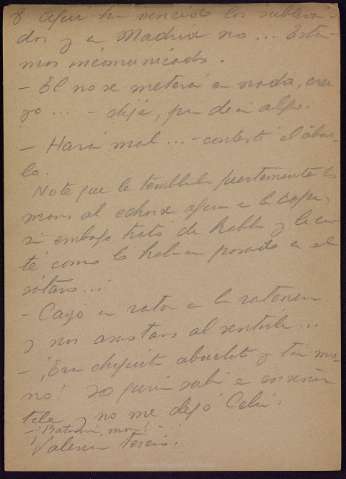 Y aquí han vencido los subleva-
dos y en Madrid no... Esta-
mos incomunicados.
- Él no se meterá en nada, creo
yo... - dije, por decir algo.
- Hará mal... - contestó el abue-
lo.
Noté que le temblaban fuertemente las
manos al echarse agua en la copa,
sin embargo trató de hablar y le con-
té como lo habían pasado en el
sótano...
- Cayó un ratón en la ratonera
y nos asustamos al sentirle...
- ¡Era chiquitito abuelito y tan mo-
no! Yo quería
y no me dejó Celia.
- ¡ mona!
Valen